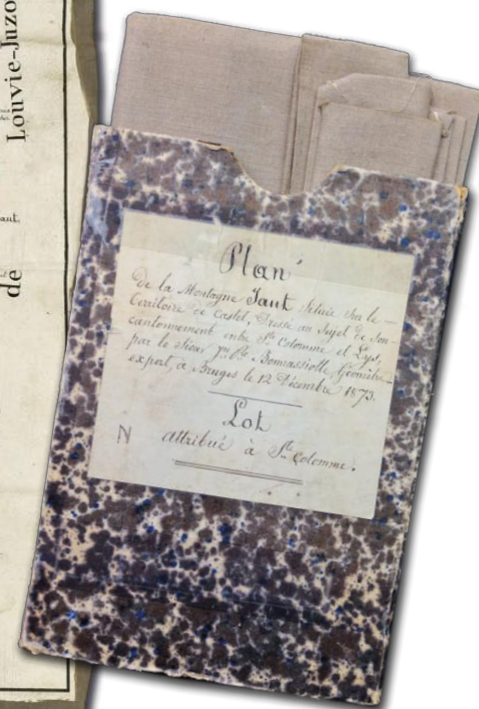 Louvie-Juzo
de
Plan
De la Montagne Jaut Située Sur le
territoire de Castet, Dressé au Sujet de Son
cantonnement entre Ste Colomme et Lys,
par le Sieur Bonnassiolle, Géomètre
expert, à Bruges le 12 Décembre 1873.
Lot
N attribué à Ste Colomme.